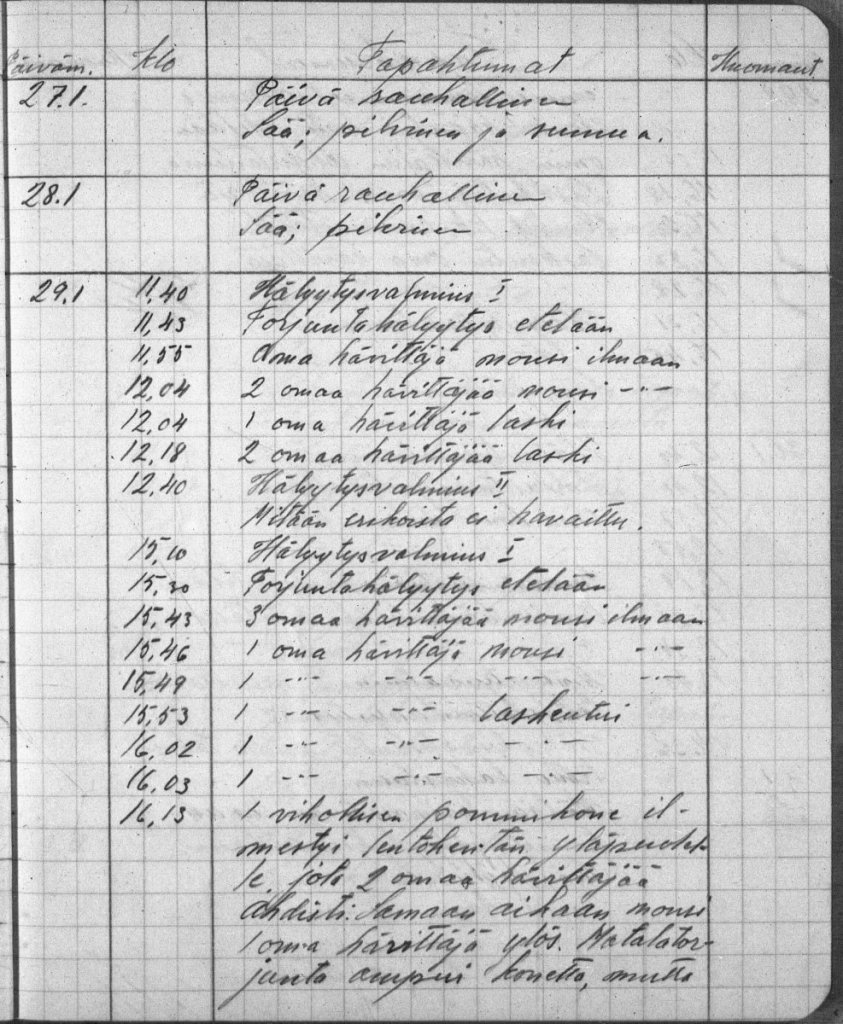 Päiväm. klo Tapahtumat Huomaut.
27.1. Päivä rauhallinen
Sää; pilvinen ja sumua.
28.1 Päivä rauhallinen
Sää; pilvinen
29.1 11,40 Hälyytysvalmius I
11,43 Torjuntahälyytys etelään
11,55 Oma hävittäjä nousi ilmaan
12,04 2 omaa hävittäjää nousi -"-
12,04 1 oma hävittäjä laski
12,18 2 omaa hävittäjää laski
12,40 Hälyytysvalmius II
Mitään erikoista ei havaittu.
15,10 Hälyytysvalmius I
15,30 Torjuntahälyytys etelään
15,43 3 omaa hävittäjää nousi ilmaan
15,46 1 oma hävittäjä nousi -"-
15,49 1 -"- -"- -"- -"-
15,53 1 -"- -"- laskeutui
16,02 1 -"- -"- -"-
16,03 1 -"- -"- -"-
16,13 1 vihollisen pommikone il-
mestyi lentokentän yläpuolel-
le, jota 2 omaa hävittäjää
ahdisti. Samaan aikaan nousi
1 oma hävittäjä ylös. Matalator-
junta ampui konetta, mutta